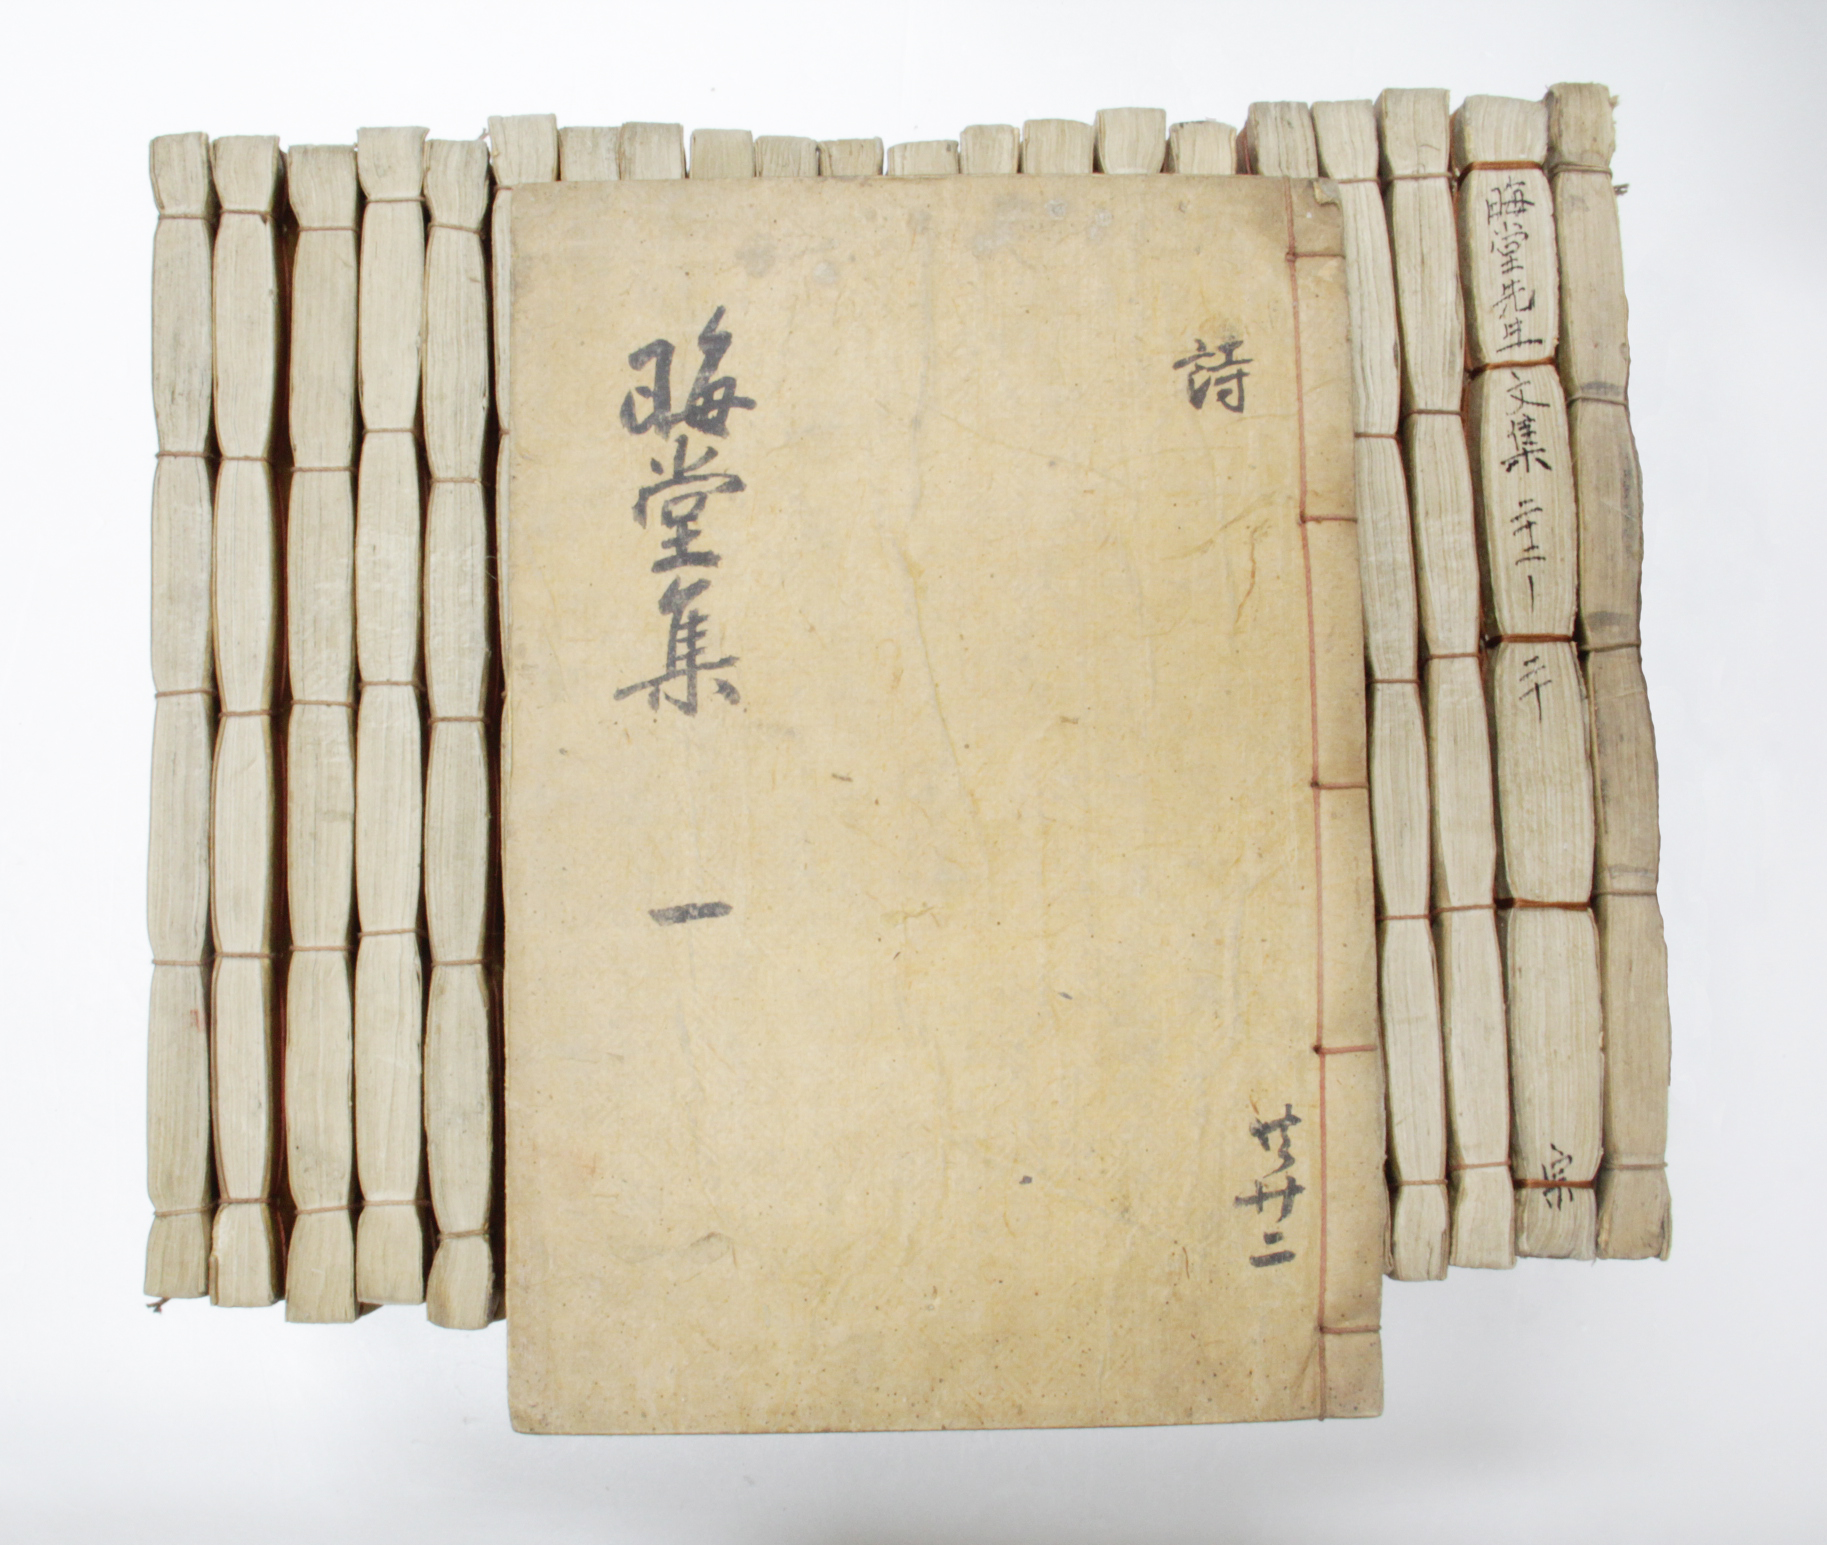 詩
晦堂集 一
共廿二
晦堂先生文集 二十二
二十
宗